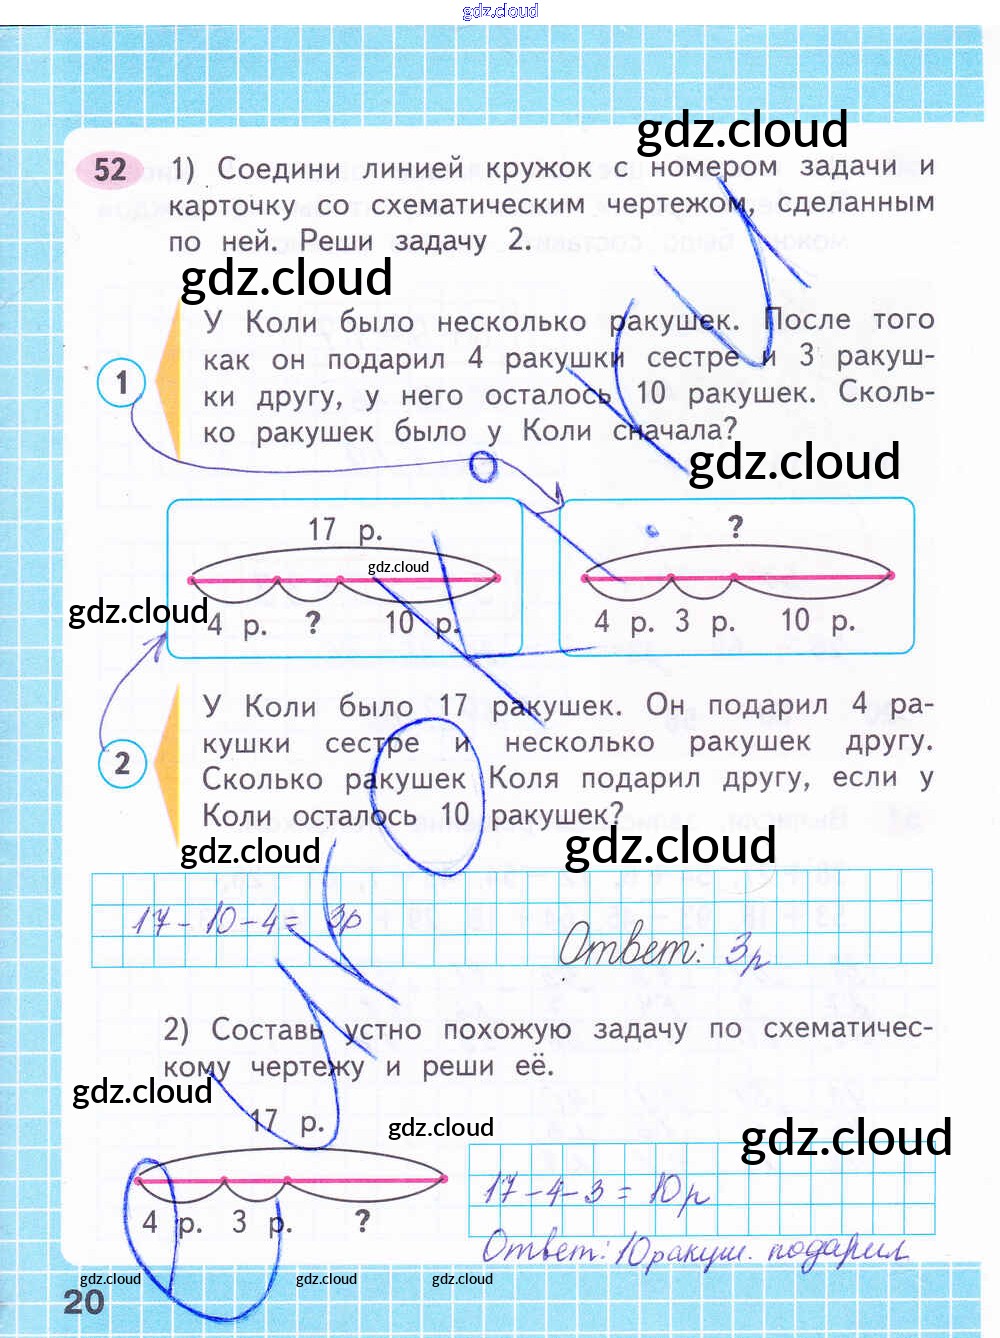 gdz.cloud
gdz.cloud
52 1) Соедини линией кружок с номером задачи и
карточку со схематическим чертежом, сделанным
по ней. Реши задачу 2.
gdz.cloud
У Коли было несколько ракушек. После того
как он подарил 4 ракушки сестре и 3 ракуш-
1
ки другу, у него осталось 10 ракушек. Сколь-
ко ракушек было у Коли сначала?
gdz.cloud
17 р.
?
gdz.cloud
gdz.cloud
4 р. ? 10 р.
4 р. 3 р. 10 р.
У Коли было 17 ракушек. Он подарил 4 ра-
кушки сестре и несколько ракушек другу.
2
Сколько ракушек Коля подарил другу, если у
Коли осталось 10 ракушек?
gdz.cloud
gdz.cloud
17-10-4= 3р
Ответ: 3р
2) Составь устно похожую задачу по схематичес-
кому чертежу и реши её.
gdz.cloud
17 р.
gdz.cloud
gdz.cloud
4 р. 3 р. ?
17-4-3=10р
Ответ: 10ракуш. подарил
gdz.cloud
gdz.cloud
gdz.cloud
20